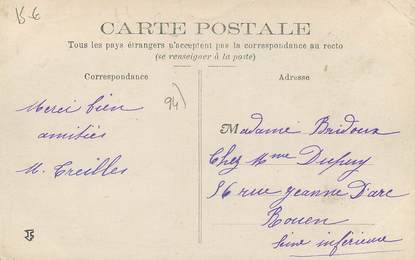 15 €
CARTE POSTALE
Tous les pays étrangers n'acceptent pas la correspondance au recto
(se renseigner à la poste)
Correspondance
Adresse
94)
Merci bien
amitiés
M. Treilles
Madame Bridoux
Chez Mme Dupuy
56 rue Jeanne D'arc
Rouen
Seine inférieure